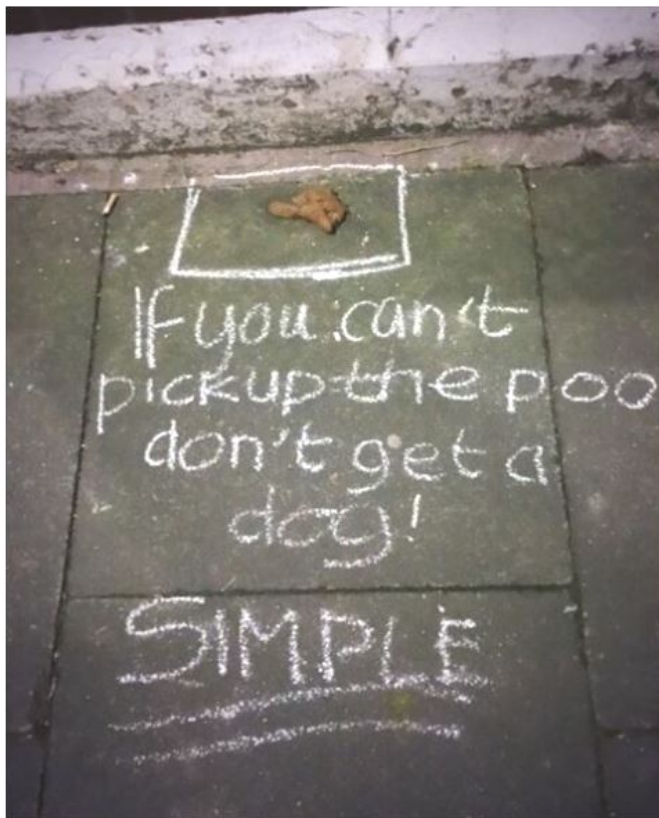 If you can't
pick up the poo
don't get a
dog!
SIMPLE